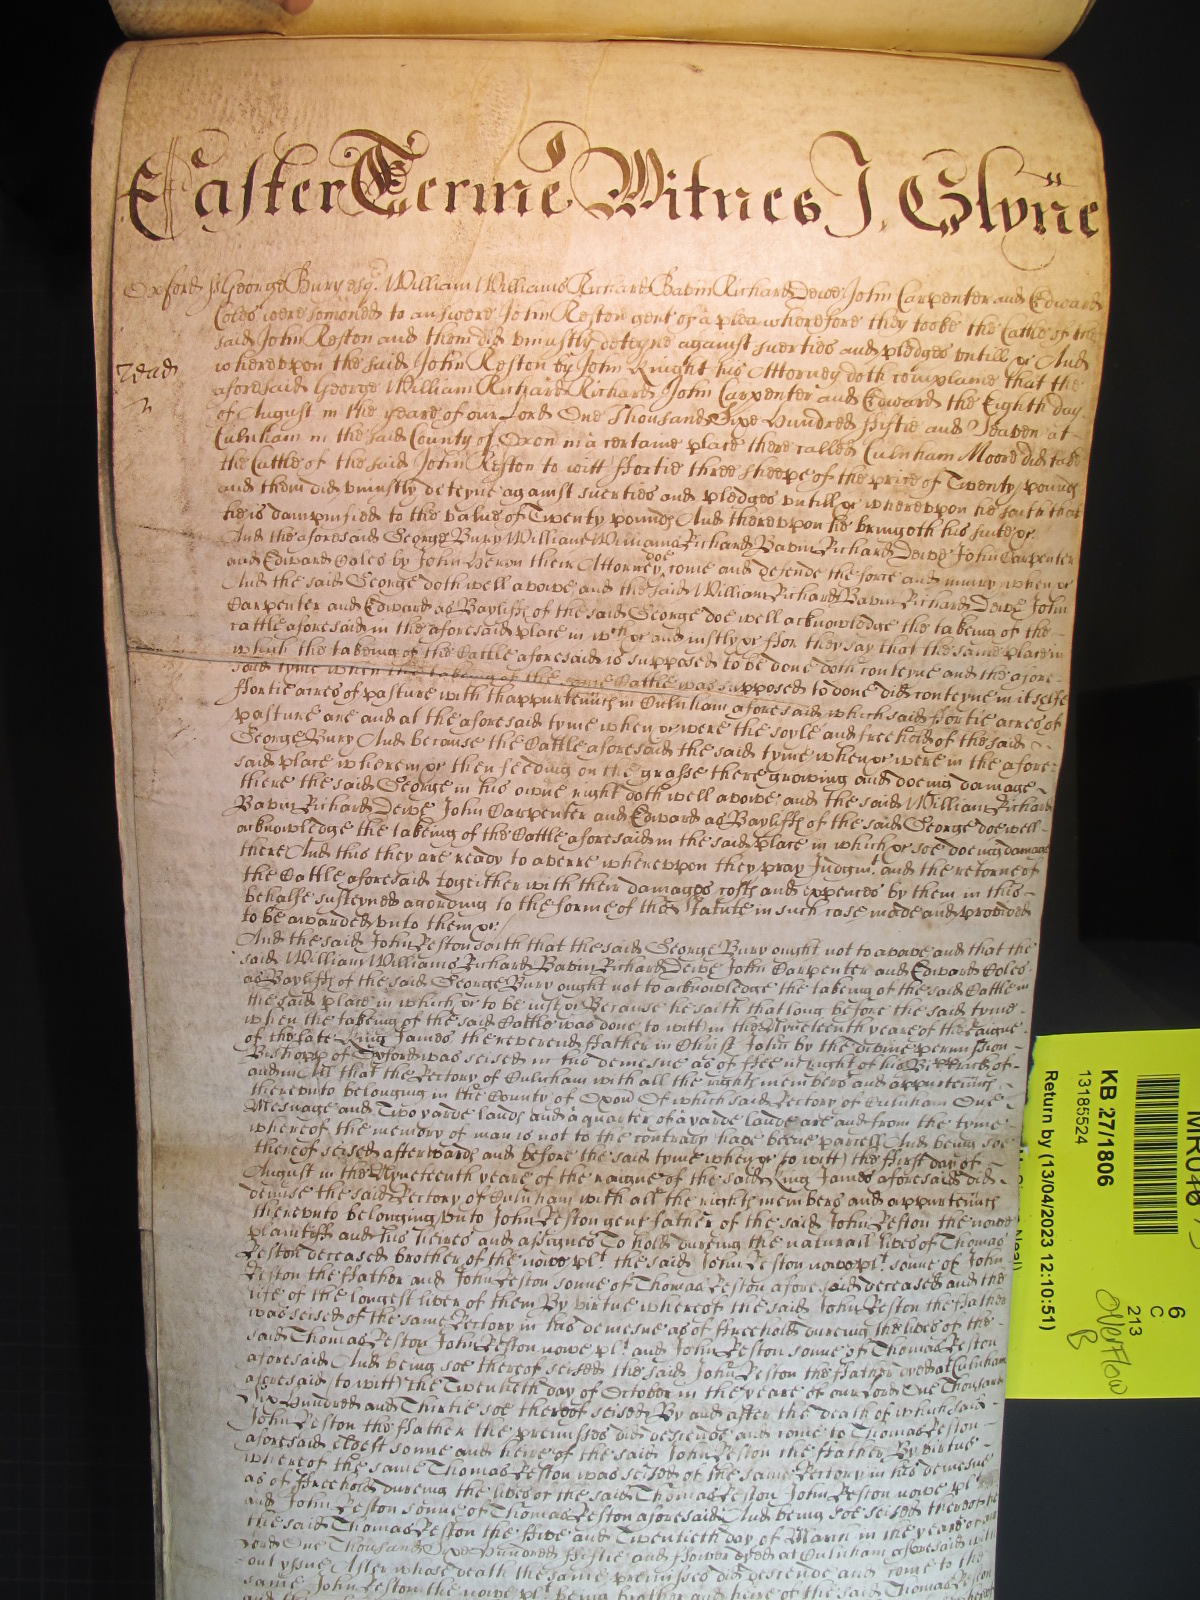 Easter Terme Witnes J. Glyne
Oxford ss George Bury esqr. William Williams Richard Bavin Richard Dewe John Carpenter and Edward
Coles were somoned to answere John Reston gent of a plea wherefore they tooke the Cattle of the
said John Reston and them did uniustly deteyne against suerties and pledges untill &c And
whereupon the said John Reston by John Knight his Attorney doth complaine that the
aforesaid George William Richard Richard John Carpenter and Edward the Eighth day
of August in the yeare of our Lord One Thousand Sixe Hundred Fiftie and Seaven at
Culnham in the said County of Oxon in a certaine place there called Culnham Moore did take
the Cattle of the said John Reston to witt ffortie three sheepe of the price of Twenty pounds
and them did uniustly deteyne against suerties and pledges untill &c whereupon he saith that
he is dampnified to the value of Twenty pounds And thereupon he bringeth his suite &c
And the aforesaid George Bury William Williams Richard Bavin Richard Dewe John Carpenter
and Edward Coles by John Heron their Attorney doe come and defende the force and iniury when &c
And the said George doth well avowe and the said William Richard Bavin Richard Dewe John
Carpenter and Edward as Bayliffs of the said George doe well acknowledge the takeing of the
cattle aforesaid in the aforesaid place in wch &c and iustly &c ffor they say that the same place in
which the takeing of the Cattle aforesaid is supposed to be done doth conteyne and the afore-
said tyme when the takeing of the same Cattle was supposed to done did conteyne in it selfe
ffortie acres of pasture with thappurtenncs in Culnham aforesaid which said ffortie acres of
pasture are and at the aforesaid tyme when &c were the soyle and freehold of the said
George Bury And because the Cattle aforesaid the said tyme when &c were in the afore-
said place wherein &c then feeding on the grasse there growing and doeing damage
there the said George in his owne right doth well avowe and the said William Richard
Bavin Richard Dewe John Carpenter and Edward as Bayliffs of the said George doe well
acknowledge the takeing of the Cattle aforesaid in the said place in which &c soe doeing damage
there And this they are ready to averre whereupon they pray Judgmt. and the retorne of
the Cattle aforesaid together with their damages costs and expences by them in this
behalfe susteyned acording to the forme of the Statute in such case made and provided
to be awarded unto them &c
And the said John Reston saith that the said George Bury ought not to avowe and that the
said William Williams Richard Bavin Richard Dewe John Carpenter and Edward Coles
as Bayliffs of the said George Bury ought not to acknowledge the takeing of the said Cattle in
the said place in which &c to be iust &c Because he saith that long before the said tyme
when the takeing of the said Cattle was done to witt in the Nyneteenth yeare of the raigne
of the late King James the reverend ffather in Christ John by the divine permission
Bishopp of Oxford was seised in his demesne as of ffee in right of his Bishoprick of
and in All that the Rectory of Culnham with all the rights members and appurtenncs
thereunto belonging in the County of Oxon Of which said Rectory of Culnham One
Mesuage and Two yarde lands and a quarter of a yarde lande are and from the tyme
whereof the memory of man is not to the contrary have beene parcell And being soe
thereof seised afterwards and before the said tyme when &c to witt the ffirst day of
August in the Nyneteenth yeare of the raigne of the said King James aforesaid did
demise the said Rectory of Culnham with all the rights members and appurtenncs
thereunto belonging unto John Reston gent father of the said John Reston the nowe
plaintiff and his heires and assignes To hold dureing the naturall lives of Thomas
Reston deceased brother of the nowe plt. the said John Reston nowe plt. sonne of John
Reston the ffather and John Reston sonne of Thomas Reston aforesaid deceased and the
life of the longest liver of them By virtue whereof the said John Reston the ffather
was seised of the same Rectory in his demesne as of ffreehold dureing the lives of the
said Thomas Reston John Reston nowe plt. and John Reston sonne of Thomas Reston
aforesaid And being soe thereof seised the said John Reston the ffather dyed at Culnham
aforesaid (to witt) the Twentieth day of October in the yeare of our Lord One Thousand
Six Hundred and Thirtie soe thereof seised By and after the death of which said
John Reston the ffather the premisses did descende and come to Thomas Reston
aforesaid eldest sonne and heire of the said John Reston the ffather By virtue
whereof the same Thomas Reston was seised of the same Rectory in his demesne
as of ffreehold dureing the lives of the said Thomas Reston John Reston nowe plt.
and John Reston sonne of Thomas Reston aforesaid And being soe seised thereof
the said Thomas Reston the ffive and Twentieth day of March in the yeare of our
Lord One Thousand Sixe Hundred ffiftie and ffower dyed at Culnham aforesaid with
out yssue After whose death the same premisses did descende and come to the
same John Reston the nowe plt. being brother and heire of the said Thomas Reston
KB 27/1806
13185524
Return by (13/04/2023 12:10:51)
6
C
213
Overflow
B